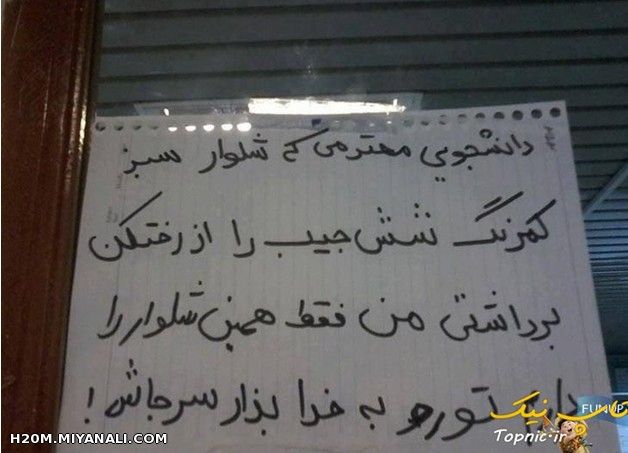 دانشجوی محترمی که شلوار سبز
کمرنگ شش جیب را از رختکن
برداشتی من فقط همین شلوار را
تورو به خدا بذار سرجاش!
H20M.MIYANALI.COM
Topnic.ir
FUNUP